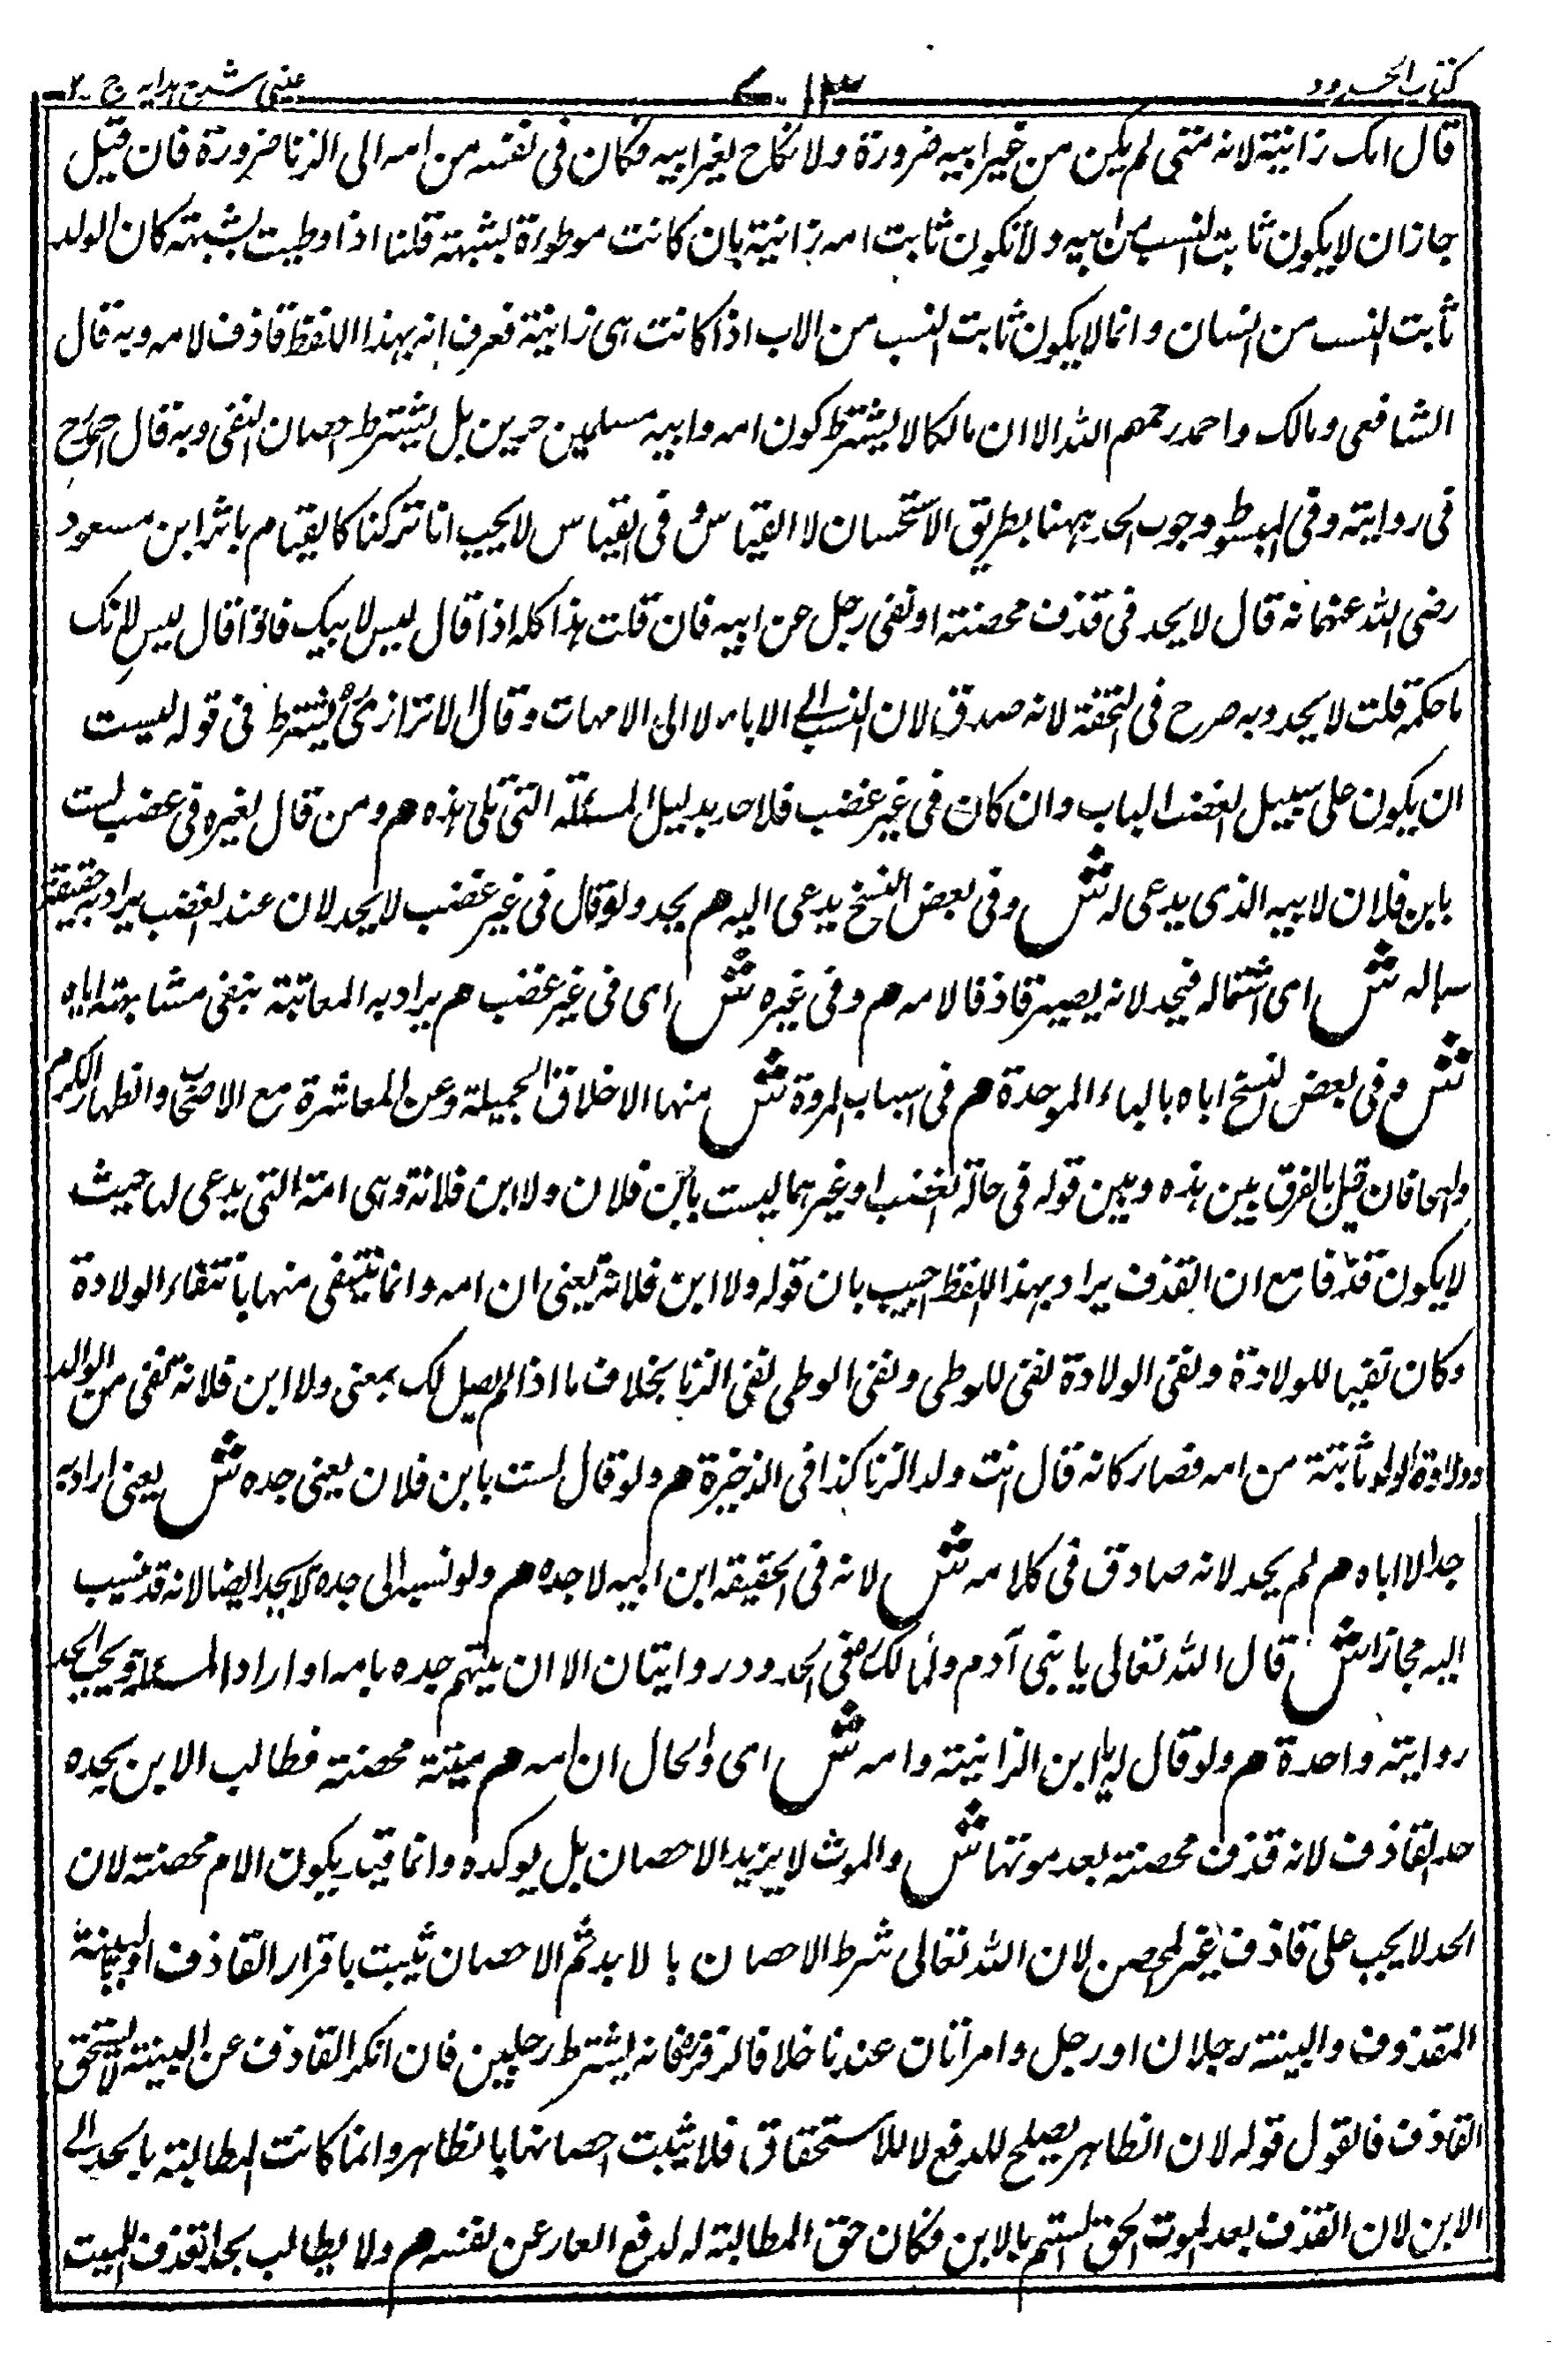 كتاب الحدود ١٣٠٧ عینی شرح ہدایہ ج ۲
قال امک زانیة لانه متى لم یکن من غیر ابیه ضرورة ولا نکاح لغیر ابیه فکان فی نفسه من امه الى الزنا ضرورة فان قیل
جاز ان لا یکون ثابت النسب من ابیه ولا تکون ثابت امه زانیة بان کانت موطوءة بشبهة قلنا اذا وطیت بشبهة کان الولد
ثابت النسب من انسان وانما لا یکون ثابت النسب من الاب اذا کانت هی زانیة فعرف انه بهذا اللفظ قاذف لامه وبه قال
الشافعی ومالک واحمد رحمهم الله الا ان مالکا لا یشترط کون امه وابیه مسلمین حرین بل یشترط احصان النفی وبه قال احمد
فی روایته وفی المبسوط وجوب الحد ههنا بطریق الاستحسان لا القیاس وفی القیاس لا یجب انا ترکنا القیاس باثر ابن مسعود
رضی الله عنهما نه قال لا یحد فی قذف محصنة او نفی رجل عن ابیه فان قلت هذا کله اذا قال لیس لابیک فاذا قال لیس لامک
ما حکمه قلت لا یحد وبه صرح فی التحفة لانه صدق لان النسب الى الاباء لا الى الامهات وقال الاترازی یشترط فی قوله لیست
ان یکون على سبیل الغضب الباب وان کان فی غیر غضب فلا حد بدلیل المسئلة التی تلی هذه هم ومن قال لغیره فی غضب لست
بابن فلان لابیه الذی یدعى له ش وفی بعض النسخ یدعى الیه هم یحد ولو قال فی غیر غضب لا یحد لان عند الغضب یراد به حقیقته
سبا له ش ای اشتما له فیحد لانه یصیر قاذفا لامه هم وفی غیره ش ای فی غیر غضب هم یراد به المعاتبة بنفی مشابهته اباه
ش وفی بعض النسخ اباه بالباء الموحدة هم فی اسباب المروة ش منها الاخلاق الجمیلة وعن المعاشرة مع الاصحاب واظهار الکرم
فان قیل بالفرق بین هذه وبین قوله فی حالة الغضب او غیرهما لیست بابن فلان ولا ابن فلانة وهی امة التی یدعى لها حیث
لا یکون قذفا مع ان القذف یراد بهذا اللفظ اجیب بان قوله ولا ابن فلانة یعنی ان امه وانما ینتفی منها بانتفاء الولادة
وکان نفیا للولادة ونفی الولادة نفی للوطی ونفی الوطی نفی الزنا بخلاف ما اذا لم یصل لک بمعنى ولا ابن فلانة نفی من الوالد
وولادة الولد ثابتة من امه فصار کانه قال انت ولد الزنا کذا فی الذخیرة هم ولو قال لست بابن فلان یعنی جده ش یعنی اراد به
جدا لا اباه هم لم یحد لانه صادق فی کلامه ش لانه فی الحقیقة ابن ابیه لا جده هم ولو نسبه الى جده لا یحد ایضا لانه قد ینسب
الیه مجازا ش قال الله تعالى یا بنی آدم ولمالک فی الحدود روایتان الا ان یتهم جده بامه او اراد المسئلة ویجب الحد
روایته واحدة هم ولو قال له یا ابن الزانیة وامه ش ای والحال ان امه هم میتة محصنة فطالب الابن بحده
حد القاذف لانه قذف محصنة بعد موتها ش والموت لا یزید الاحصان بل یوکده وانما قید یکون الام محصنة لان
الحد لا یجب على قاذف غیر المحصن لان الله تعالى شرط الاحصان با لا بد ثم الاحصان یثبت باقرار القاذف او ببینة
المقذوف والبینة رجلان او رجل وامراتان عندنا خلافا لزفر فانه یشترط رجلین فان انکر القاذف عن البینة لا یستحق
القاذف فالقول قوله لان الظاهر یصلح للدفع لا للاستحقاق فلا یثبت احصانها بالظاهر وانما کانت المطالبة بالحد الى
الابن لان القذف بعد الموت الحق الشتم بالابن فکان حق المطالبة له لدفع العار عن نفسه هم ولا یطالب بحد القذف للمیت